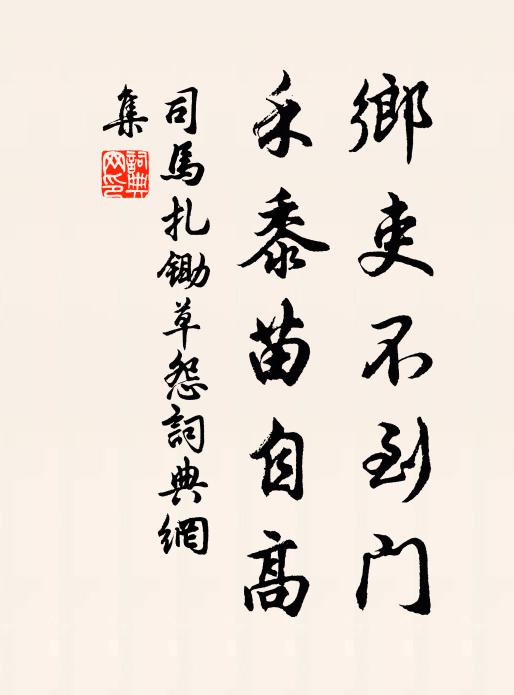 鄉吏不到門
禾黍苗自高
司馬扎鋤草怨詞典網
集
詞典
网印